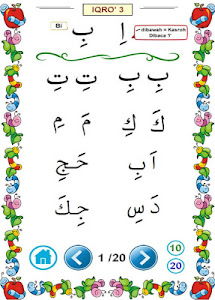 IQRO' 3
Bi
اِ بِ
dibawah = Kasroh
Dibaca 'I'
بِ بِ تِ تِ
كَ كِ مَ مِ
اَبِ حَجِ
دَسِ جِكَ
1 /20
10
20